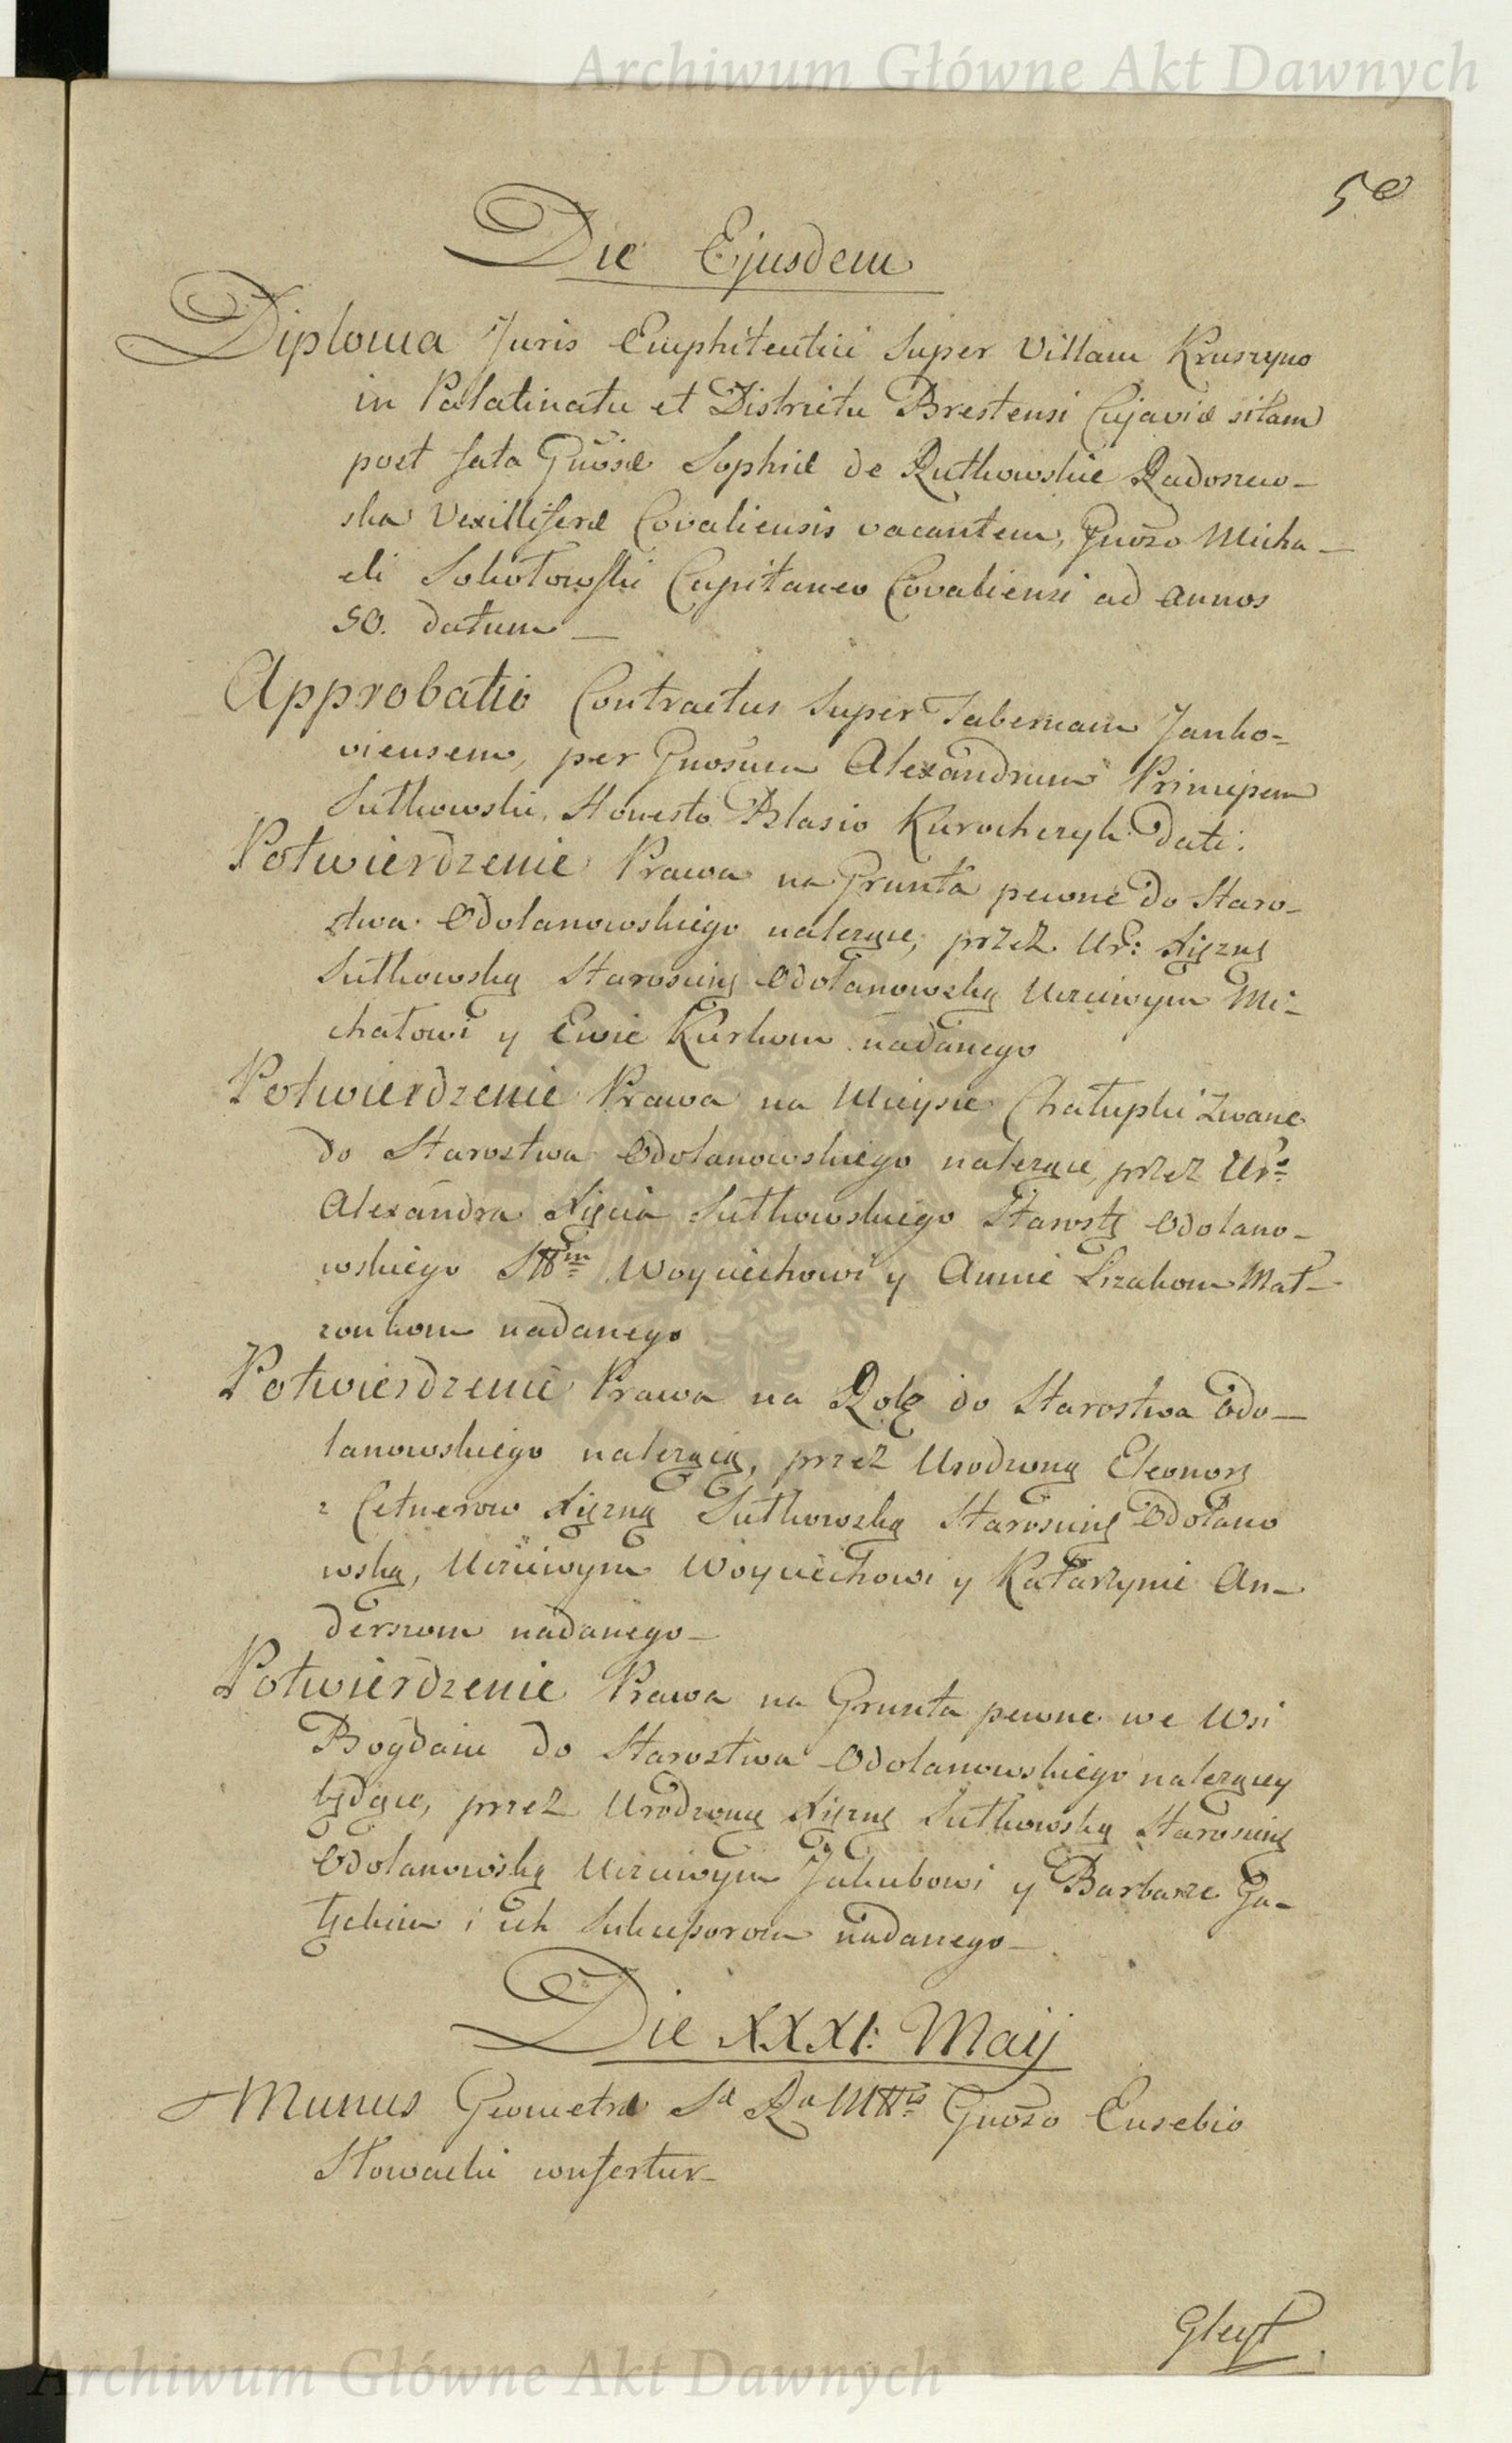 Archiwum Główne Akt Dawnych
50
Die Ejusdem
Diploma Juris Emphiteutici super Villam Kruszyno
in Palatinatu et Districtu Brestensi Cujaviæ sitam
post fata Gnosæ Sophiæ de Rutkowskie Radoszew-
ska Vexilliferæ Covaliensis vacantem, Gnoso Micha-
eli Sokołowski Capitaneo Covaliensi ad annos
50. datum
Approbatio Contractus super Tabernam Janko-
viensem, per Gnosum Alexandrum Principem
Sułkowski, Honesto Blasio Kurochczyk dati.
Potwierdzenie Prawa na Grunta pewne do Staro-
stwa Odolanowskiego należące, przez Ur: Xiężnę
Sułkowską Starościnę Odolanowską Uczciwym Mi-
chałowi y Ewie Kurkom nadanego
Potwierdzenie Prawa na Mieysce Chałupki zwane
do Starostwa Odolanowskiego należące, przez Uro
Alexandra Xięcia Sułkowskiego Starostę Odolano-
wskiego Woyciechowi y Annie Lizakom Mał-
żonkom nadanego
Potwierdzenie Prawa na Rolę do Starostwa Odo-
lanowskiego należącą, przez Urodzoną Eleonorę
z Cetnerow Xiężnę Sułkowską Starościnę Odolano
wską, Uczciwym Woyciechowi y Katarzynie An-
derszom nadanego
Potwierdzenie Prawa na Grunta pewne we Wsi
Bogdaiu do Starostwa Odolanowskiego należącey
będące, przez Urodzoną Xiężnę Sułkowską Starościnę
Odolanowską Uczciwym Jakubowi y Barbarze Ga-
łęckim i ich Sukcessorom nadanego
Die XXXI: Maij
Munus Geometræ Sæ Ræ Mttis Gnoso Eusebio
Słowacki confertur
Gleyt
Archiwum Główne Akt Dawnych